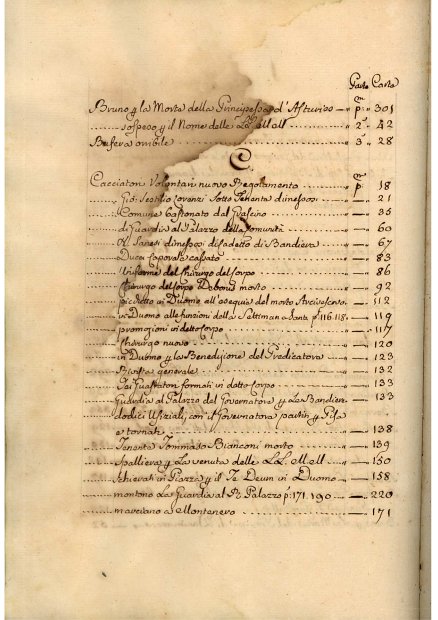 Parte Carta
Bruno p la Morte della Principessa d'Asturies p.ma 301
sospeso p il Nome delle LL. MM. 2a 42
Bufera orribile 3a 28
C.
Cacciatori Volontari nuovo Regolamento p.ma 18
Gio: Sestilio Lorenzi Sotto Tenente di nessos 21
Comune bastonato dal Grascino 35
di Guardia al Palazzo della Comunità 60
Sanesi dinessos di Cadetto di Bandiera 67
Duca Caporale cassato 83
Uniforme del Chirurgo del Corpo 86
Chirurgo del Corpo Debons morto 92
picchetto in Duomo all'esequie del morto Arcivescovo 112
in Duomo alle funzioni della Settiman.a Santa p. 116.118. 119
promozioni in detto Corpo 117
Chirurgo nuovo 120
in Duomo p la Benedizione del Predicatore 123
Rivista generale 132
Guastatori formati in detto Corpo 133
Guardia al Palazzo del Governatore p le Bandiere 133
dodici Ufiziali con il Governatore partiti p Pisa
e tornati 138
Tenente Tommaso Bianconi morto 139
Spalliera p La venuta delle LL. MM. 150
Schierati in Piazza p il Te Deum in Duomo 158
montono La Guardia al R. Palazzo p. 171. 190 220
marciano a Montenero 171